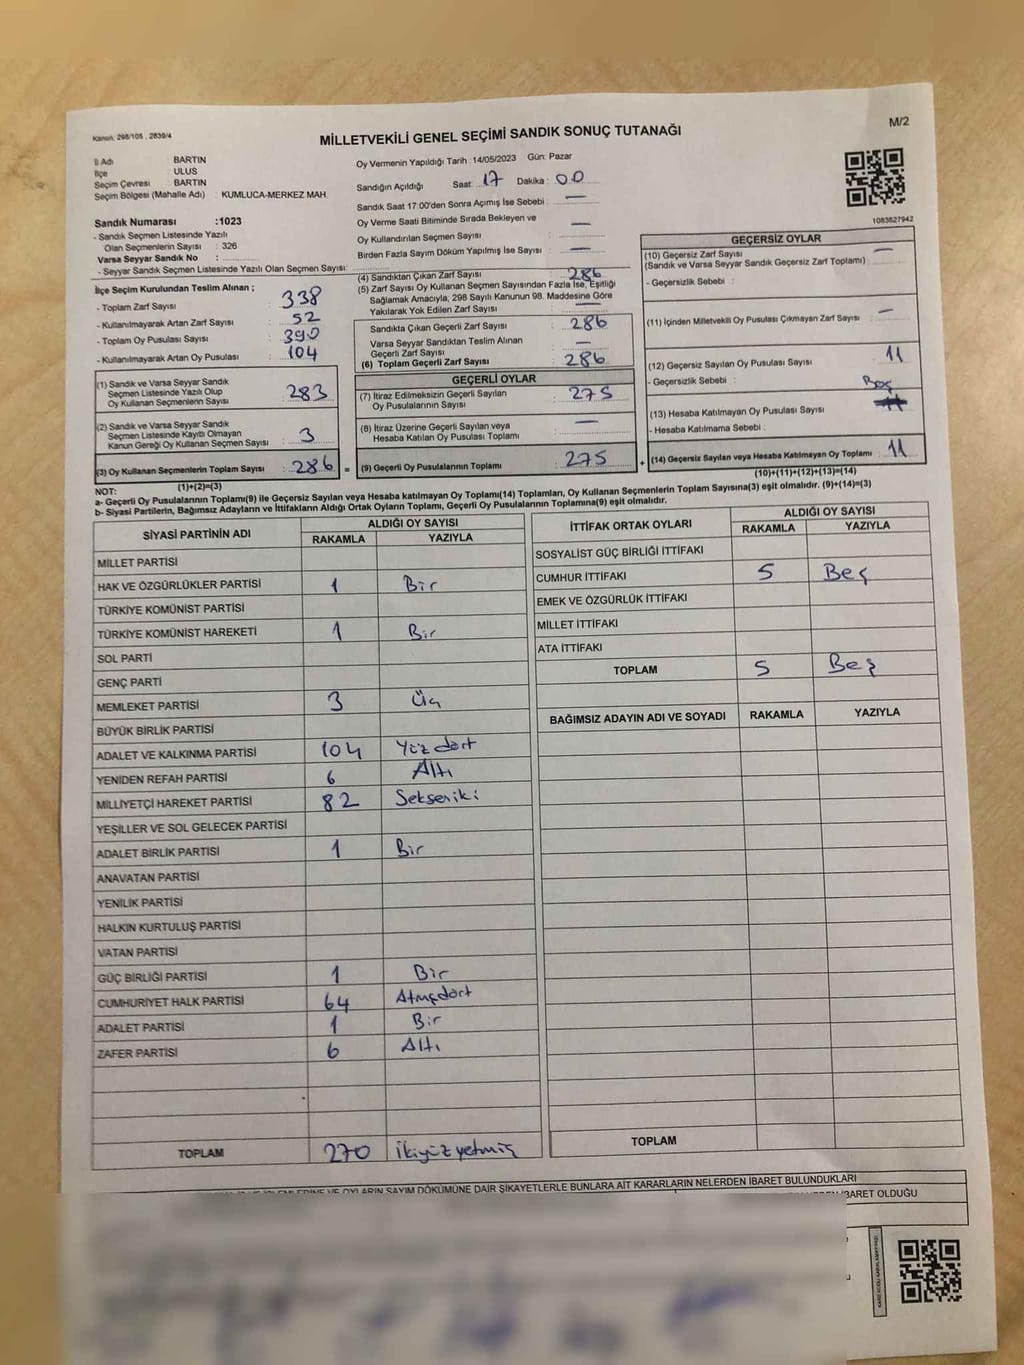 Kanun, 298/105 , 2839/4
MİLLETVEKİLİ GENEL SEÇİMİ SANDIK SONUÇ TUTANAĞI
M/2
İl Adı : BARTIN
İlçe : ULUS
Seçim Çevresi : BARTIN
Seçim Bölgesi (Mahalle Adı) : KUMLUCA-MERKEZ MAH.
Sandık Numarası :1023
- Sandık Seçmen Listesinde Yazılı
Olan Seçmenlerin Sayısı : 326
Varsa Seyyar Sandık No :
- Seyyar Sandık Seçmen Listesinde Yazılı Olan Seçmen Sayısı:
Oy Vermenin Yapıldığı Tarih : 14/05/2023 Gün: Pazar
Sandığın Açıldığı Saat: 17 Dakika : 00
Sandık Saat 17:00'den Sonra Açımış İse Sebebi : —
Oy Verme Saati Bitiminde Sırada Bekleyen ve
Oy Kullandırılan Seçmen Sayısı : —
Birden Fazla Sayım Döküm Yapılmış İse Sayısı : —
1083827942
İlçe Seçim Kurulundan Teslim Alınan ;
- Toplam Zarf Sayısı : 338
- Kullanılmayarak Artan Zarf Sayısı : 52
- Toplam Oy Pusulası Sayısı : 390
- Kullanılmayarak Artan Oy Pusulası : 104
(1) Sandık ve Varsa Seyyar Sandık
Seçmen Listesinde Yazılı Olup
Oy Kullanan Seçmenlerin Sayısı : 283
(2) Sandık ve Varsa Seyyar Sandık
Seçmen Listesinde Kayıtlı Olmayan
Kanun Gereği Oy Kullanan Seçmen Sayısı : 3
(3) Oy Kullanan Seçmenlerin Toplam Sayısı : 286 =
(1)+(2)=(3)
(4) Sandıktan Çıkan Zarf Sayısı : 286
(5) Zarf Sayısı Oy Kullanan Seçmen Sayısından Fazla İse, Eşitliği
Sağlamak Amacıyla; 298 Sayılı Kanunun 98. Maddesine Göre
Yakılarak Yok Edilen Zarf Sayısı : —
Sandıkta Çıkan Geçerli Zarf Sayısı : 286
Varsa Seyyar Sandıktan Teslim Alınan
Geçerli Zarf Sayısı : —
(6) Toplam Geçerli Zarf Sayısı : 286
GEÇERLİ OYLAR
(7) İtiraz Edilmeksizin Geçerli Sayılan
Oy Pusulalarının Sayısı : 275
(8) İtiraz Üzerine Geçerli Sayılan veya
Hesaba Katılan Oy Pusulası Toplamı : —
(9) Geçerli Oy Pusulalarının Toplamı : 275 +
GEÇERSİZ OYLAR
(10) Geçersiz Zarf Sayısı : —
(Sandık ve Varsa Seyyar Sandık Geçersiz Zarf Toplamı)
- Geçersizlik Sebebi :
(11) İçinden Milletvekili Oy Pusulası Çıkmayan Zarf Sayısı : —
(12) Geçersiz Sayılan Oy Pusulası Sayısı : 11
- Geçersizlik Sebebi : Boş
(13) Hesaba Katılmayan Oy Pusulası Sayısı :
- Hesaba Katılmama Sebebi :
(14) Geçersiz Sayılan veya Hesaba Katılmayan Oy Toplamı : 11
(10)+(11)+(12)+(13)=(14)
NOT:
a- Geçerli Oy Pusulalarının Toplamı(9) ile Geçersiz Sayılan veya Hesaba katılmayan Oy Toplamı(14) Toplamları, Oy Kullanan Seçmenlerin Toplam Sayısına(3) eşit olmalıdır. (9)+(14)=(3)
b- Siyasi Partilerin, Bağımsız Adayların ve İttifakların Aldığı Ortak Oyların Toplamı, Geçerli Oy Pusulalarının Toplamına(9) eşit olmalıdır.
SİYASİ PARTİNİN ADI ALDIĞI OY SAYISI
RAKAMLA YAZIYLA
MİLLET PARTİSİ
HAK VE ÖZGÜRLÜKLER PARTİSİ 1 Bir
TÜRKİYE KOMÜNİST PARTİSİ
TÜRKİYE KOMÜNİST HAREKETİ 1 Bir
SOL PARTİ
GENÇ PARTİ
MEMLEKET PARTİSİ 3 Üç
BÜYÜK BİRLİK PARTİSİ
ADALET VE KALKINMA PARTİSİ 104 Yüz dört
YENİDEN REFAH PARTİSİ 6 Altı
MİLLİYETÇİ HAREKET PARTİSİ 82 Sekseniki
YEŞİLLER VE SOL GELECEK PARTİSİ
ADALET BİRLİK PARTİSİ 1 Bir
ANAVATAN PARTİSİ
YENİLİK PARTİSİ
HALKIN KURTULUŞ PARTİSİ
VATAN PARTİSİ
GÜÇ BİRLİĞİ PARTİSİ 1 Bir
CUMHURİYET HALK PARTİSİ 64 Atmışdört
ADALET PARTİSİ 1 Bir
ZAFER PARTİSİ 6 Altı
TOPLAM 270 İkiyüz yetmiş
İTTİFAK ORTAK OYLARI ALDIĞI OY SAYISI
RAKAMLA YAZIYLA
SOSYALİST GÜÇ BİRLİĞİ İTTİFAKI
CUMHUR İTTİFAKI 5 Beş
EMEK VE ÖZGÜRLÜK İTTİFAKI
MİLLET İTTİFAKI
ATA İTTİFAKI
TOPLAM 5 Beş
BAĞIMSIZ ADAYIN ADI VE SOYADI RAKAMLA YAZIYLA
TOPLAM
OYLARIN SAYIM DÖKÜMÜNE DAİR ŞİKAYETLERLE BUNLARA AİT KARARLARIN NELERDEN İBARET BULUNDUKLARI
İBARET OLDUĞU